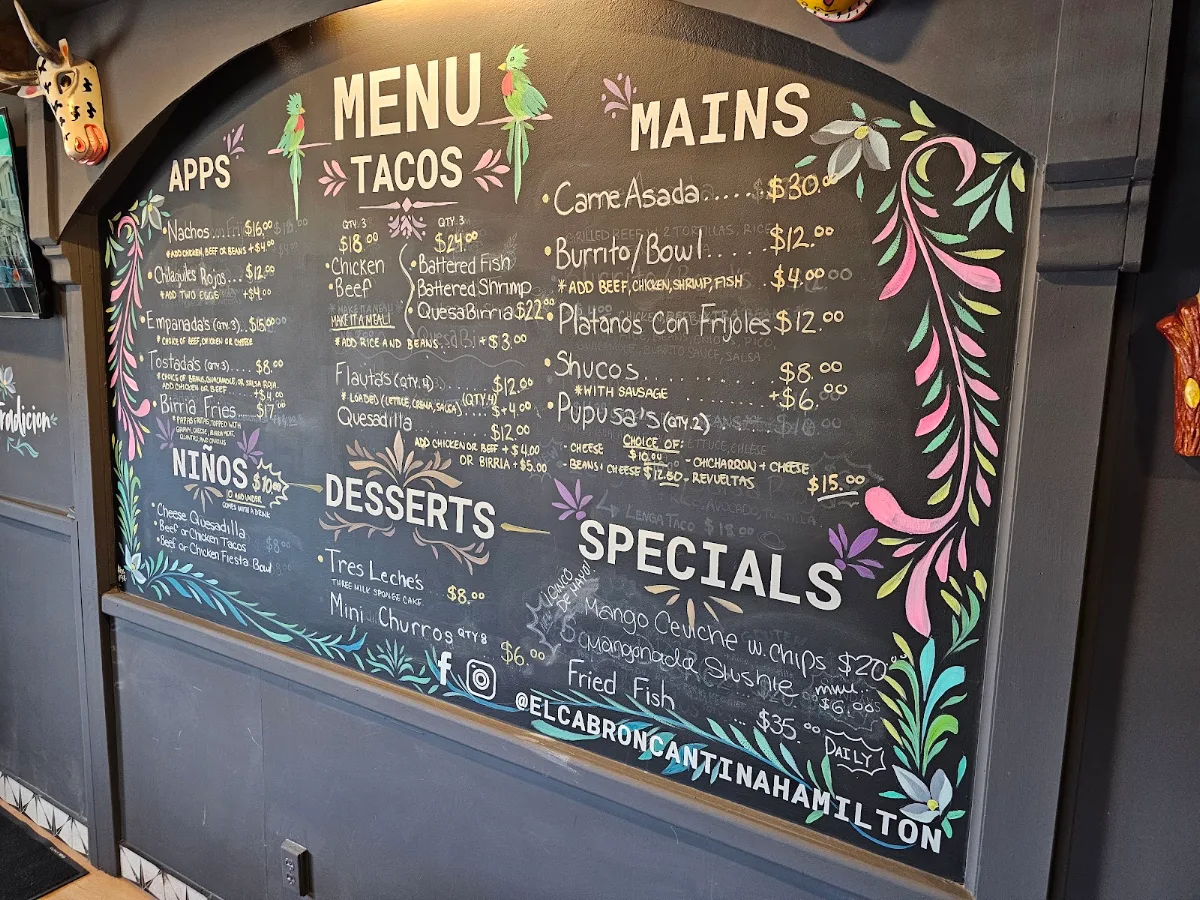 MENU
APPS
Nachos $16.00
*ADD CHICKEN, BEEF OR BEANS +$4.00
Chilaquiles Rojos... $12.00
*ADD TWO EGGS +$4.00
Empanada's (QTY. 3)..
*CHOICE OF BEEF, CHICKEN OR CHEESE
Tostada's (QTY. 3)... $8.00
*CHOICE OF BEANS, GUACAMOLE, OR SALSA ROJA
ADD CHICKEN OR BEEF +$4.00
Birria Fries... $17.
*PAPAS FRITAS TOPPED WITH
CILANTRO, AND ONIONS
NIÑOS $10.00
10 AND UNDER
COMES WITH A DRINK
Cheese Quesadilla
Beef or Chicken Tacos
Beef or Chicken Fiesta Bowl
TACOS
QTY. 3
$18.00
Chicken
Beef
QTY. 3
$24.00
Battered Fish
Battered Shrimp
QuesaBirria $22.00
MAKE IT A MEAL!
*ADD RICE AND BEANS +$3.00
Flauta's (QTY. 4) $12.00
*LOADED (LETTUCE, CREMA, SALSA) (QTY. 4) +$4.00
Quesadilla $12.00
ADD CHICKEN OR BEEF +$4.00
OR BIRRIA +$5.00
DESSERTS
Tres Leche's
THREE MILK SPONGE CAKE. $8.00
Mini Churros QTY 8
$6.00
MAINS
Carne Asada..... $30.00
Burrito/Bowl $12.00
*ADD BEEF, CHICKEN, SHRIMP, FISH $4.00
Platanos Con Frijoles $12.00
Shucos $8.00
*WITH SAUSAGE +$6.00
Pupusa's (QTY. 2)
CHOICE OF:
- CHEESE $10.00 - CHICHARRON + CHEESE
- BEANS + CHEESE $12.50 - REVUELTAS $15.00
SPECIALS
CINCO
DE MAYO!
Mango Ceviche w. Chips $20
Slushie mini..
$6.00
Fried Fish ... $35.00 DAILY
@ELCABRONCANTINAHAMILTON